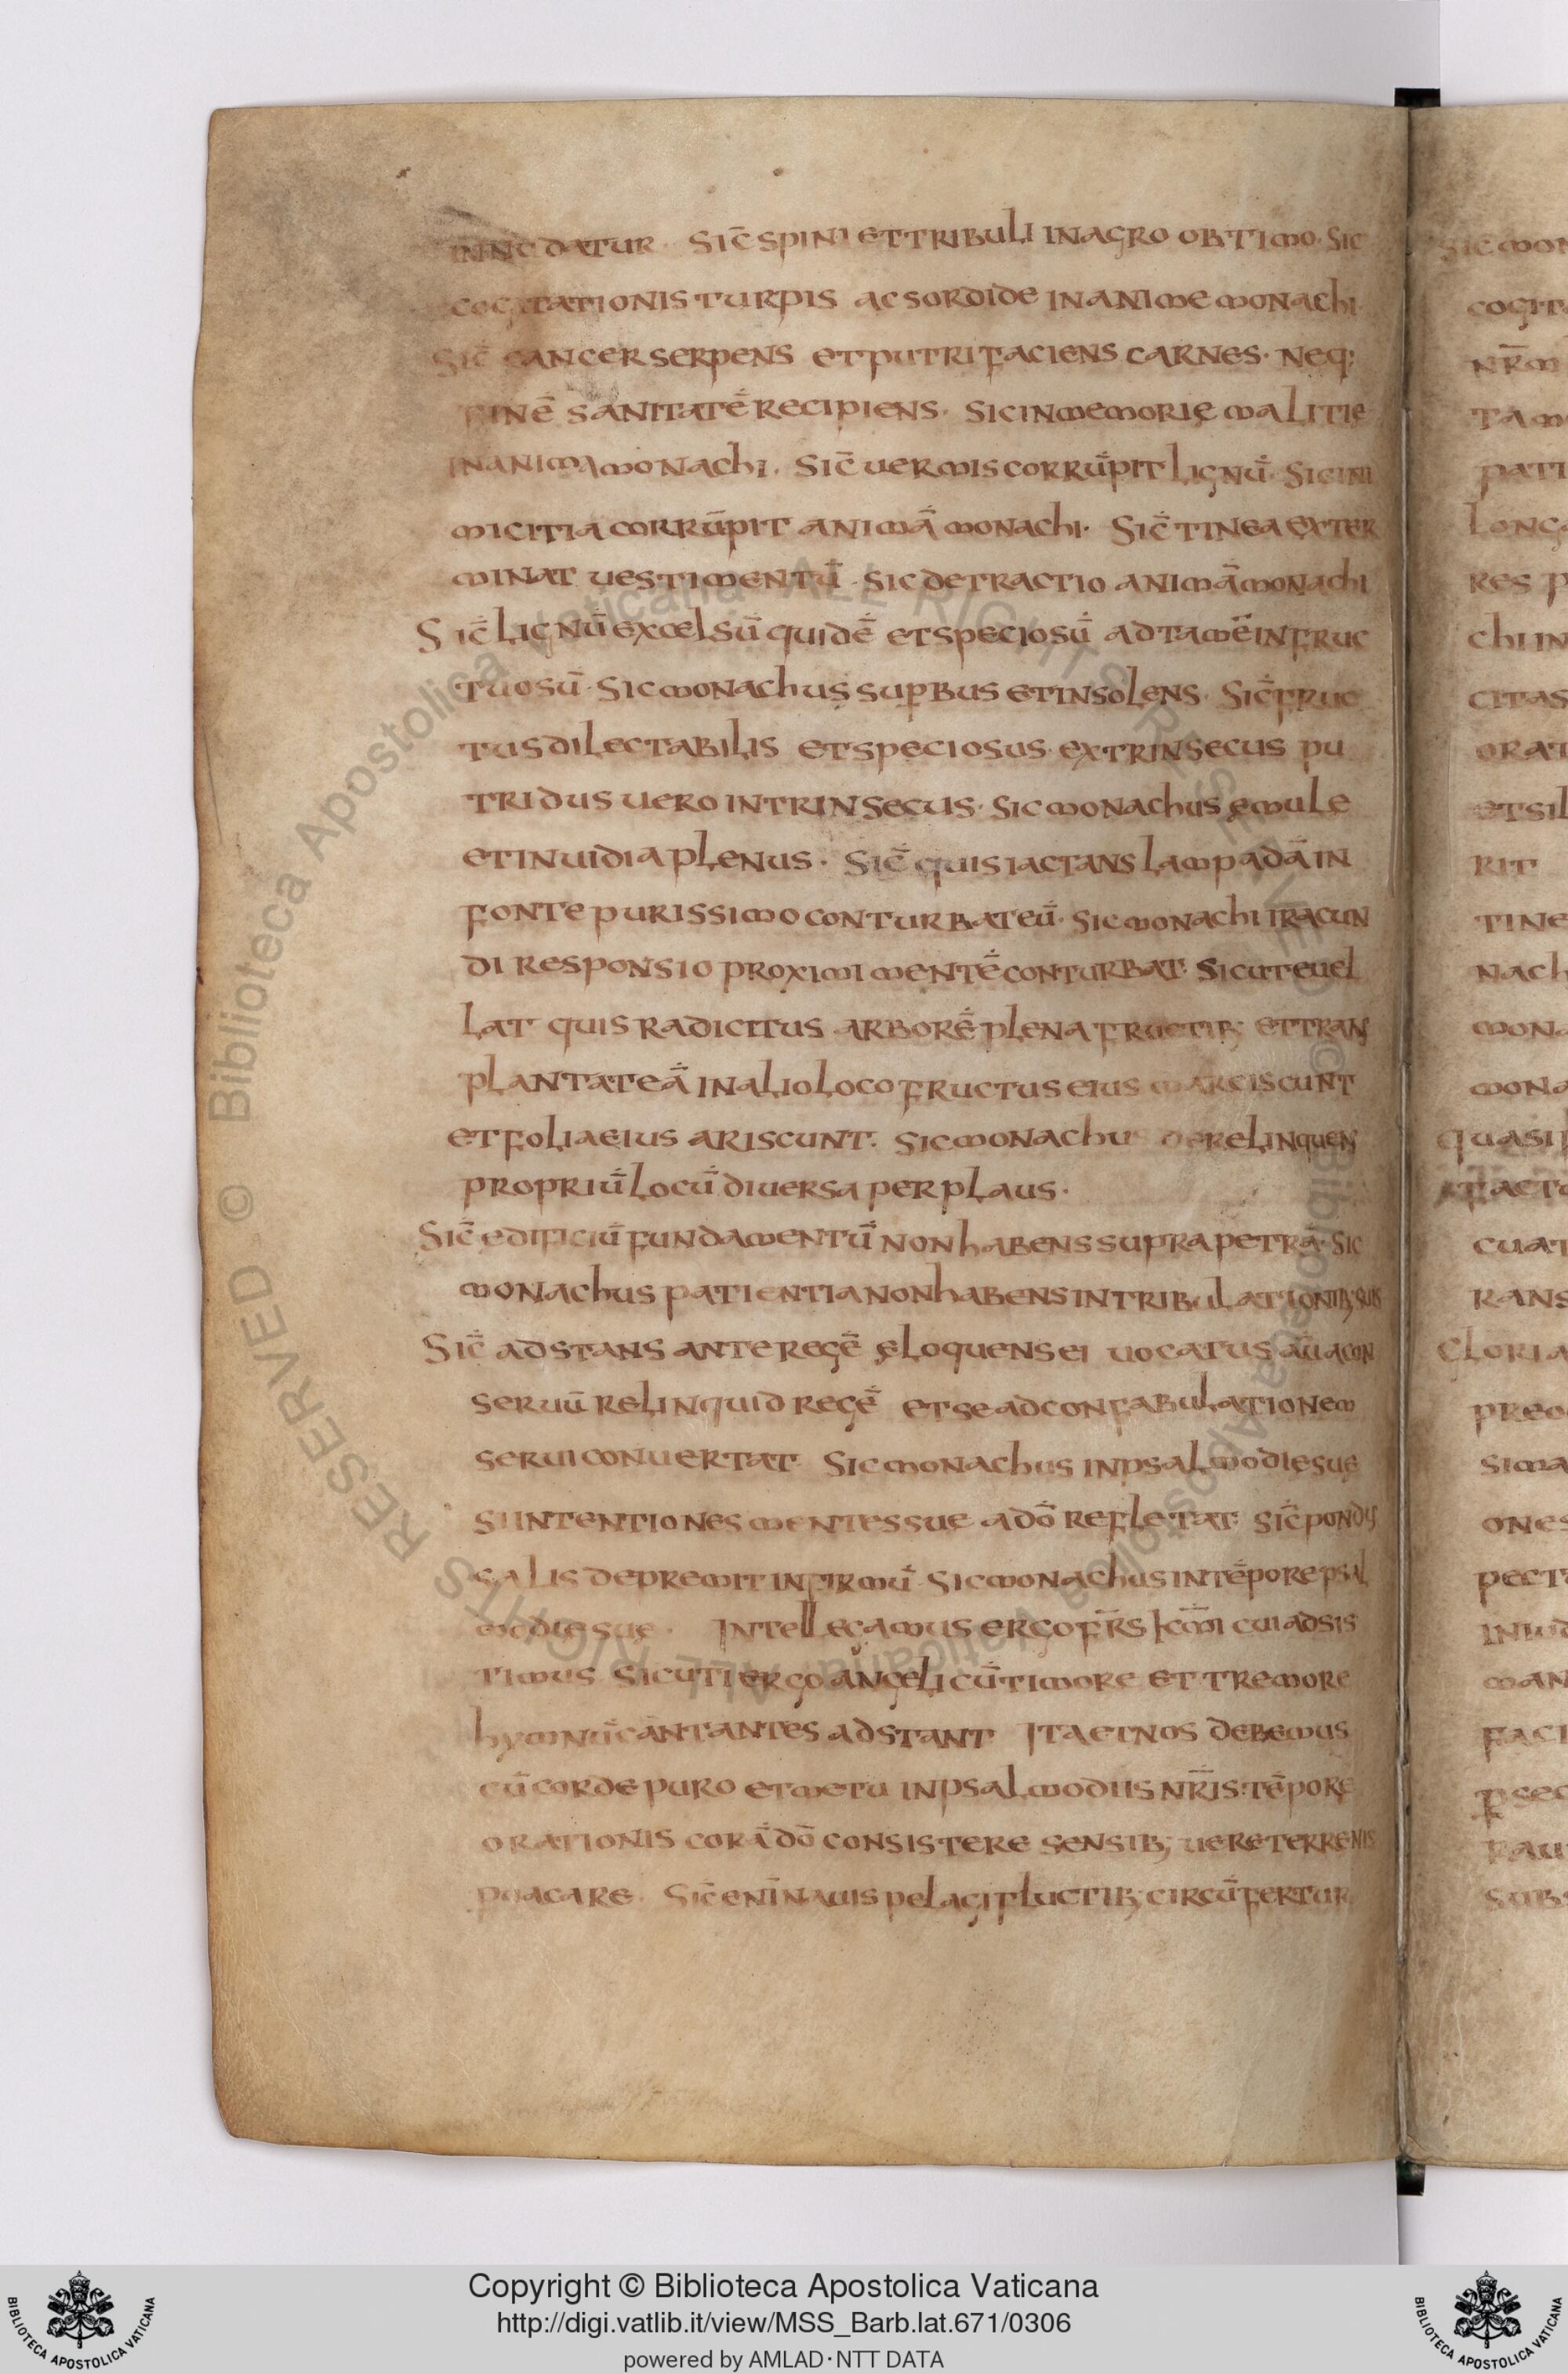 datur · sic̄ spini et tribuli in agro obtimo · sic
cogitationis turpis ac sordide in anime monachi
sic̄ cancer serpens et putrifaciens carnes · neq;
finē sanitatē recipiens · sic in memorię malitię
in anima monachi · sic̄ uermis corrūpit lignū · sic ini
micitia corrūpit animā monachi · sic̄ tinea exter
minat uestimentū · sic detractio animā monachi
Sic̄ lignū excelsū quidē et speciosū ad tamē infruc
tuosū · sic monachus supbus et insolens · sic̄ fruc
tus dilectabilis et speciosus · extrinsecus pu
tridus uero intrinsecus · sic monachus ęmule
et inuidia plenus · sic̄ quis iactans lampadā in
fonte purissimo conturbat eū · sic monachi iracun
di responsio proximi mentē conturbat · sicut euel
lat quis radicitus arborē plena fructib; et trans
plantat eā in alio loco fructus eius marciscunt
et folia eius ariscunt · sic monachus derelinquens
propriū locū diuersa per plaus ·
Sic̄ ędificiū fundamentū non habens supra petra · sic
monachus patientia non habens in tribulationib; suis
Sic̄ adstans ante regē ęloquens ei uocatus aū a con
seruū relinquid regē et se ad confabulationem
serui conuertat · sic monachus in psalmodię suę
si intentiones mentes sue a dō refletat · sic̄ pondus
salis depremit infirmū · sic monachus in tēpore psal
modię suę · Intellegamus ergo fr̄s kc̄mi cui adsis
timus sicuti ergo angeli cū timore et tremore
hymnū cantantes adstant Ita et nos debemus
cū corde puro et metu in psalmodiis nr̄is · tēpore
orationis corā dō consistere sensib; uere terrenis
uacare · sic̄ enī nauis pelagi fluctib; circūfertur
Copyright © Biblioteca Apostolica Vaticana
http://digi.vatlib.it/view/MSS_Barb.lat.671/0306
powered by AMLAD·NTT DATA
BIBLIOTECA APOSTOLICA VATICANA
BIBLIOTECA APOSTOLICA VATICANA
© Biblioteca Apostolica Vaticana ALL RIGHTS RESERVED © Biblioteca Apostolica Vaticana ALL RIGHTS RESERVED